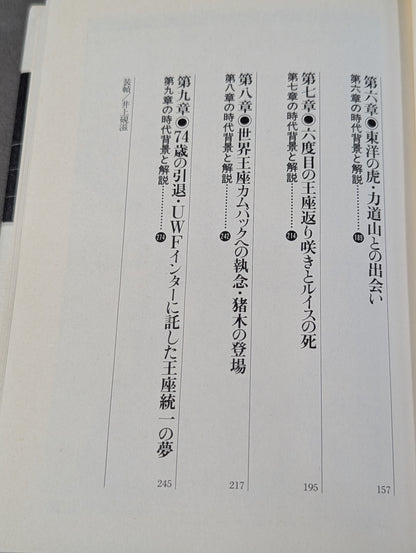 第六章●東洋の虎・力道山との出会い 157
第六章の時代背景と解説
第七章●六度目の王座返り咲きとルイスの死 195
第七章の時代背景と解説 214
第八章●世界王座カムバックへの執念・猪木の登場 217
第八章の時代背景と解説
第九章●74歳の引退・UWFインターに託した王座統一の夢 245
第九章の時代背景と解説
装幀／井上